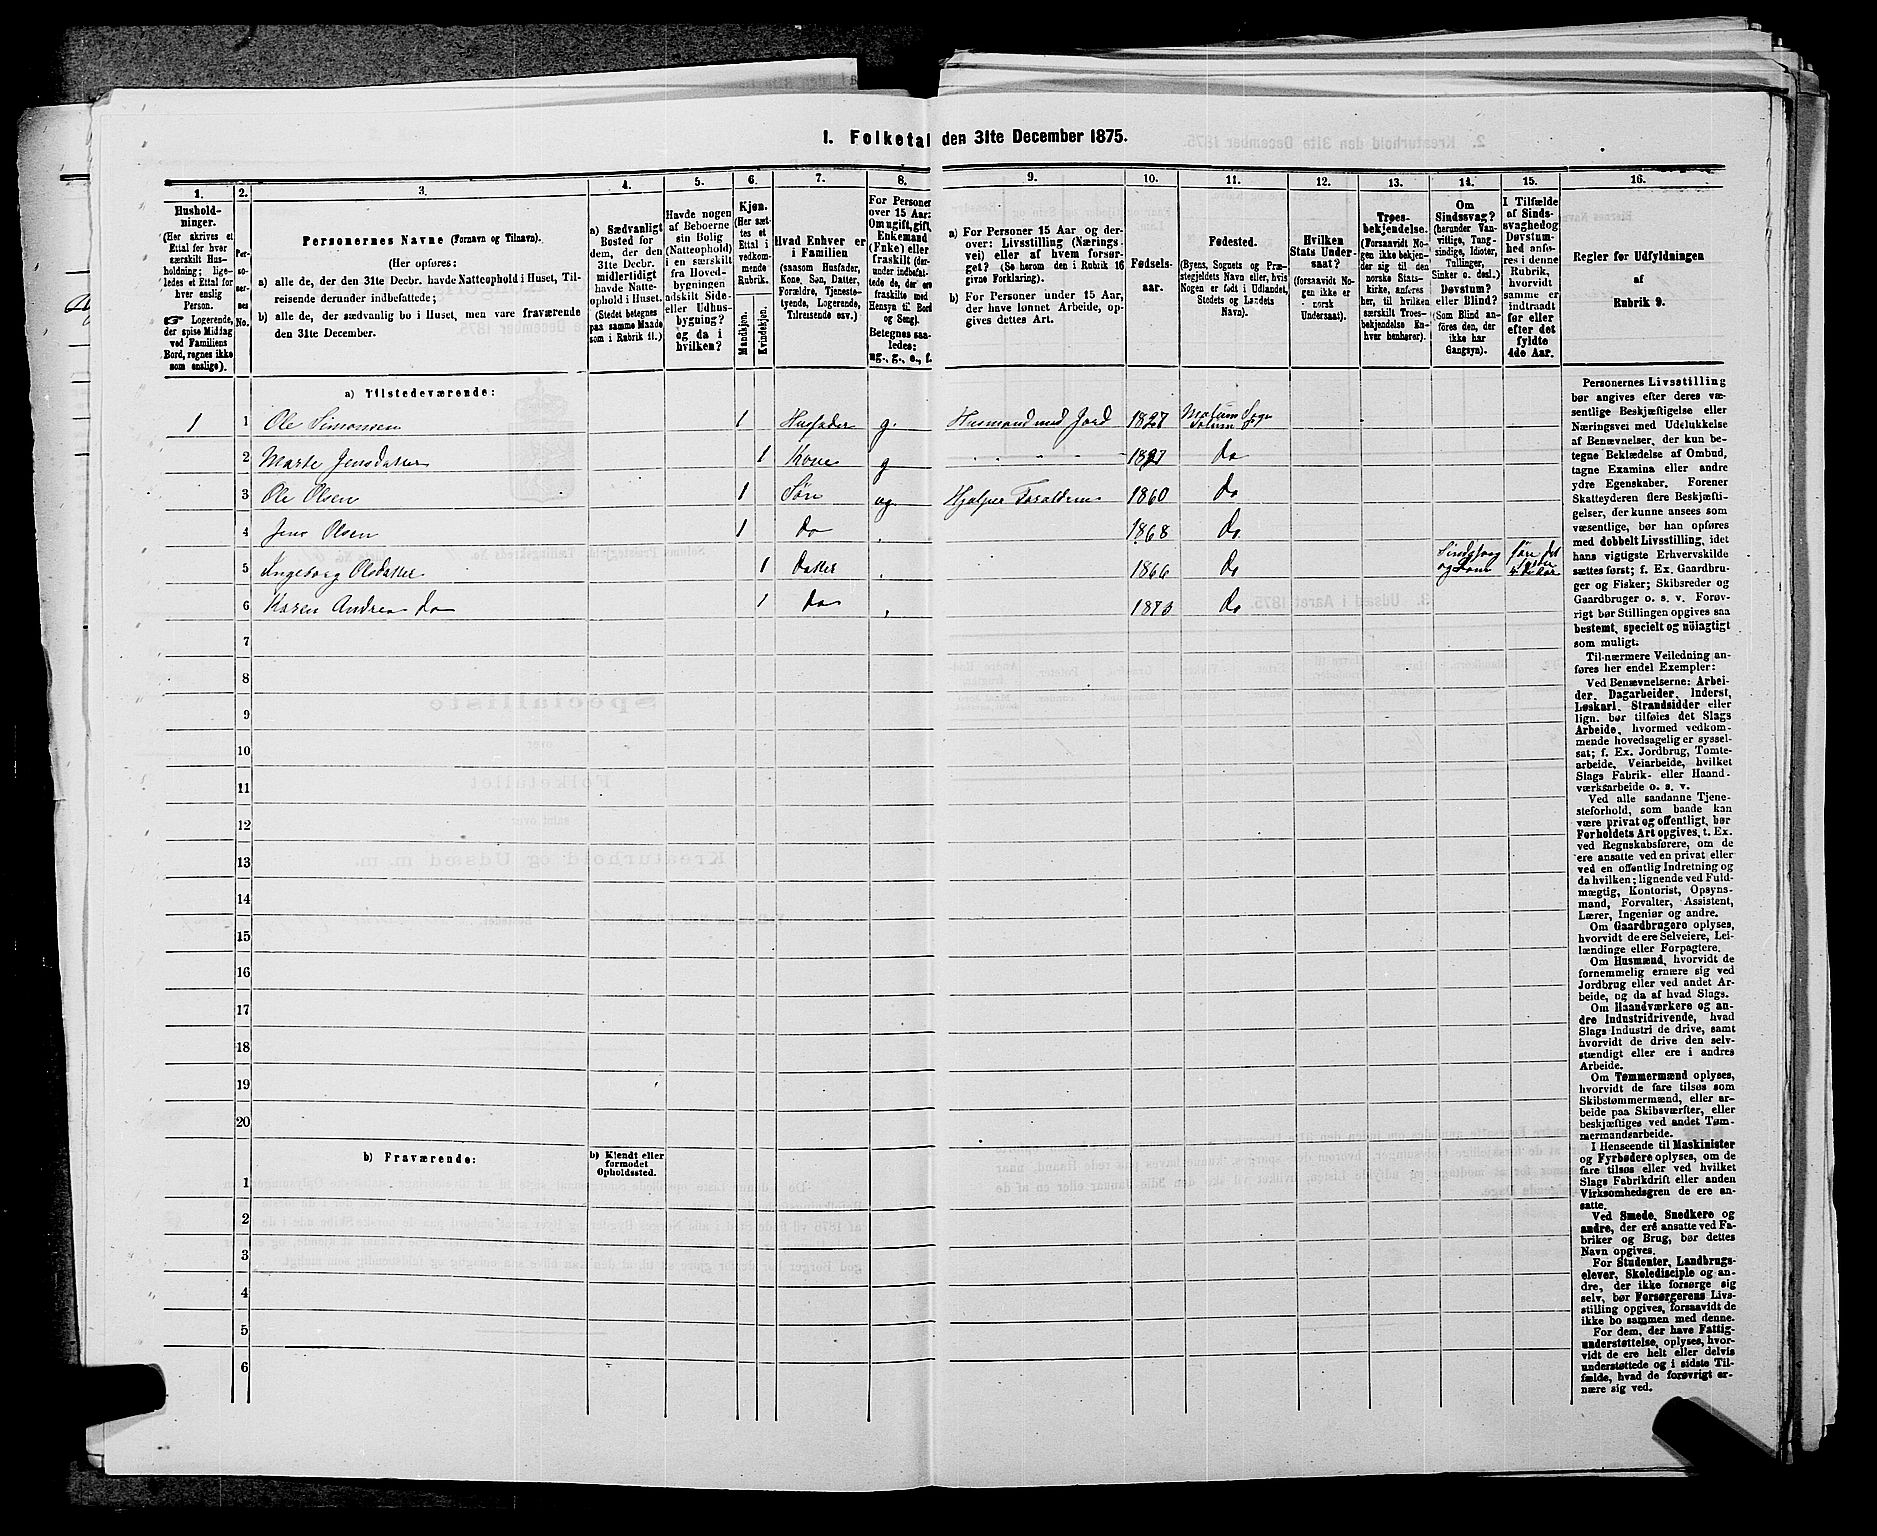 1. Folketal den 31te December 1875.
1. 2. 3. 4. 5. 6. 7. 8. 9. 10. 11. 12. 13. 14. 15. 16.
Hushold-
ninger.
(Her skrives et
Ettal for hver
særskilt Hus-
holdning; lige-
ledes et Ettal for
hver enslig
Person.
☞ Logerende,
der spise Middag
ved Familiens
Bord, regnes ikke
som enslige).
Per-
so-
ner-
nes
No.
Personernes Navne (Fornavn og Tilnavn).
(Her opføres:
a) alle de, der den 31te Decbr. havde Natteophold i Huset, Til-
reisende derunder indbefattede;
b) alle de, der sædvanlig bo i Huset, men vare fraværende
den 31te December.
a) Sædvanligt
Bosted for
dem, der den
31te Decbr.
midlertidigt
havde Natte-
ophold i Huset.
(Stedet betegnes
paa samme Maade
som i Rubrik 11.)
Havde nogen
af Beboerne
sin Bolig
(Natteophold)
i en særskilt
fra Hoved-
bygningen
adskilt Side-
eller Udhus-
bygning?
og da i
hvilken?
Kjøn.
(Her sæt-
tes et
Ettal i
vedkom-
mende
Rubrik.
Mandkjøn.
Kvindekjøn.
Hvad Enhver er
i Familien
(saasom Husfader,
Kone, Søn, Datter,
Forældre, Tjeneste-
tyende, Logerende,
Tilreisende osv.)
For Personer
over 15 Aar:
Om ugift, gift,
Enkemand
(Enke) eller
fraskilt (der-
under indbefat-
tede de, der ere
fraskilte med
Hensyn til Bord
og Seng).
Betegnes saa-
ledes:
ug., g., e., f.
a) For Personer 15 Aar og der-
over: Livsstilling (Nærings-
vei) eller af hvem forsør-
get? (Se herom den i Rubrik 16
givne Forklaring).
b) For Personer under 15 Aar,
der have lønnet Arbeide, op-
gives dettes Art.
Fødsels-
aar.
Fødested.
(Byens, Sognets og Præ-
stegjeldets Navn eller, hvis
Nogen er født i Udlandet,
Stedets og Landets
Navn).
Hvilken
Stats Under-
saat?
(forsaavidt No-
gen ikke er
norsk
Undersaat).
Troes-
bekjendelse.
(Forsaavidt No-
gen ikke bekjen-
der sig til den
norske Stats-
kirke, anføres
her, til hvilken
særskilt Troes-
bekjendelse En-
hver henhører).
Om
Sindssvag?
(herunder Van-
vittige, Tung-
sindige, Idioter,
Tullinger,
Sinker o. desl.)
Døvstum?
eller Blind?
(Som Blind an-
føres den, der
ikke har
Gangsyn).
I Tilfælde
af Sinds-
svaghed og
Døvstum-
hed anfø-
res i denne
Rubrik,
hvorvidt
samme er
indtraadt
før eller
efter det
fyldte
4de Aar.
Regler for Udfyldningen
af
Rubrik 9.
a) Tilstedeværende:
1 1 Ole Simonsen 1 Husfader g. Husmand med Jord 1827 Melum Sogn
Solum
2 Marte Jensdatter 1 Kone g 1827 Do
3 Ole Olsen 1 Søn ug. Hjelper Forældrene 1860 Do
4 Jens Olsen 1 do 1868 Do
5 Ingeborg Olsdatter 1 Datter 1866 Do Sindssvag før det
6 Karen Andrea do 1 do 1873 Do
7
8
9
10
11
12
13
14
15
16
17
18
19
20
b) Fraværende: b) Kjendt eller
formodet
Opholdssted.
1
2
3
4
5
6
Personernes Livsstilling
bør angives efter deres væ-
sentlige Beskjæftigelse eller
Næringsvei med Udelukkelse
af Benævnelser, der kun be-
tegne Beklædelse af Ombud,
tagne Examina eller andre
ydre Egenskaber. Forener
Skatteyderen flere Beskjæfti-
gelser, der kunne ansees som
væsentlige, bør han opføres
med dobbelt Livsstilling, idet
hans vigtigste Erhvervskilde
sættes først; f. Ex. Gaardbru-
ger og Fisker; Skibsreder og
Gaardbruger o. s. v. Forøv-
rigt bør Stillingen opgives saa
bestemt, specielt og nöiagtigt
som muligt.
Til nærmere Veiledning an-
føres her endel Exempler:
Ved Benævnelserne: Arbei-
der, Dagarbeider, Inderst,
Løskarl, Strandsidder eller
lign. bør tilføies det Slags
Arbeide, hvormed vedkom-
mende hovedsagelig er syssel-
sat; f. Ex. Jordbrug, Tomte-
arbeide, Veiarbeide, hvilket
Slags Fabrik- eller Haand-
værksarbeide o. s. v.
Ved alle saadanne Tjene-
steforhold, som baade kan
være privat og offentligt, bør
Forholdets Art opgives, t. Ex.
ved Regnskabsførere, om de
ere ansatte ved en privat eller
ved en offentlig Indretning og
da hvilken; lignende ved Fuld-
mægtig, Kontorist, Opsyns-
mand, Forvalter, Assistent,
Lærer, Ingeniør og andre.
Om Gaardbrugere oplyses,
hvorvidt de ere Selveiere, Lei-
lændinge eller Forpagtere.
Om Husmænd, hvorvidt de
fornemmelig ernære sig ved
Jordbrug eller ved andet Ar-
beide, og da af hvad Slags.
Om Haandværkere og an-
dre Industridrivende, hvad
Slags Industri de drive, samt
hvorvidt de drive den selv-
stændigt eller ere i andres
Arbeide.
Om Tømmermænd oplyses,
hvorvidt de fare tilsøs som
Skibstømmermænd, eller ar-
beide paa Skibsværfter, eller
beskjæftiges ved andet Tøm-
mermandsarbeide.
I Henseende til Maskinister
og Fyrbødere oplyses, om de
fare tilsøs eller ved hvilket
Slags Fabrikdrift eller anden
Virksomhedsgren de ere an-
satte.
Ved Smede, Snedkere og
andre, der ere ansatte ved Fa-
briker og Brug, bør dettes
Navn opgives.
For Studenter, Landbrugs-
elever, Skoledisciple og an-
dre, der ikke forsørge sig
selv, bør Forsørgerens Livs-
stilling opgives, forsaavidt de
ikke bo sammen med denne.
For dem, der have Fattig-
understøttelse, oplyses, hvor-
vidt de ere helt eller delvis
understøttede og i sidste Til-
fælde, hvad de forøvrigt er-
nære sig ved.